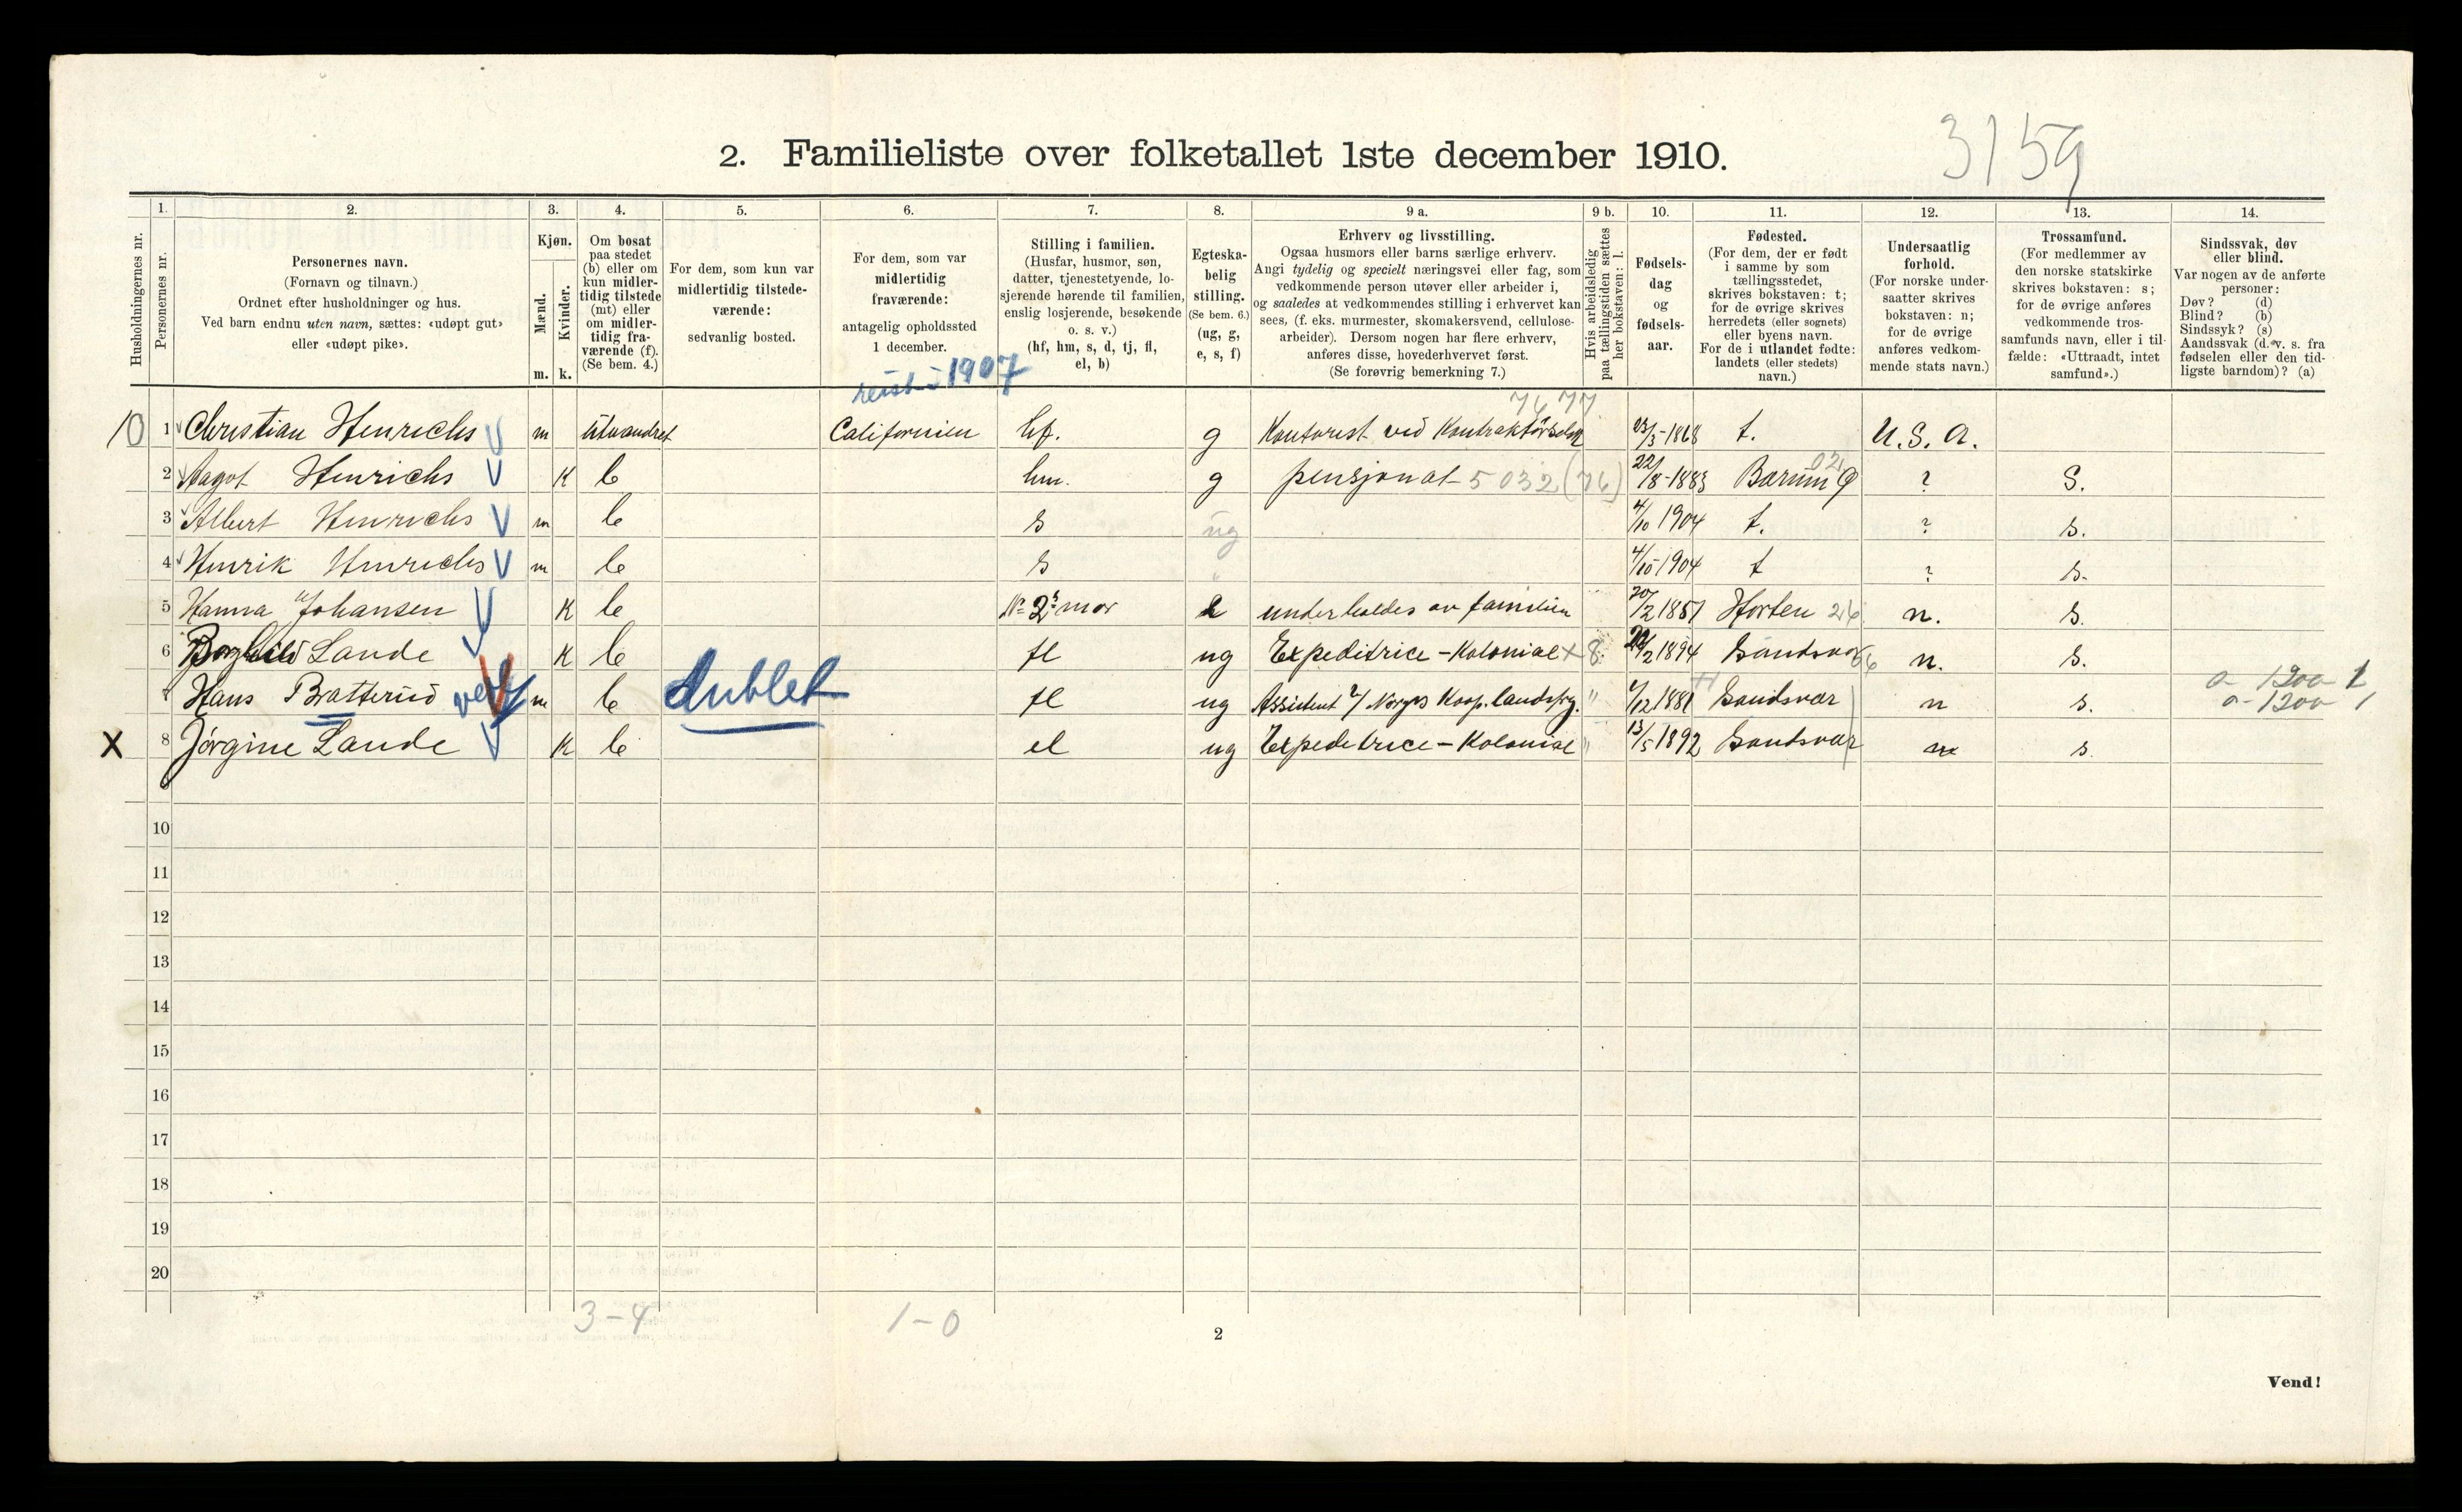 3159
2. Familieliste over folketallet 1ste december 1910.
Husholdningernes nr.
1.
Personernes nr.
2.
Personernes navn.
(Fornavn og tilnavn.)
Ordnet efter husholdninger og hus.
Ved barn endnu uten navn, sættes: «udøpt gut»
eller «udøpt pike».
3.
Kjøn.
Mænd.
Kvinder.
m. k.
4.
Om bosat
paa stedet
(b) eller om
kun midler-
tidig tilstede
(mt) eller
om midler-
tidig fra-
værende (f).
(Se bem. 4.)
5.
For dem, som kun var
midlertidig tilstede-
værende:
sedvanlig bosted.
6.
For dem, som var
midlertidig
fraværende:
antagelig opholdssted
1 december.
reist i 1907
7.
Stilling i familien.
(Husfar, husmor, søn,
datter, tjenestetyende, lo-
sjerende hørende til familien,
enslig losjerende, besøkende
o. s. v.)
(hf, hm, s, d, tj, fl,
el, b)
8.
Egteska-
belig
stilling.
(Se bem. 6.)
(ug, g,
e, s, f)
9 a.
Erhverv og livsstilling.
Ogsaa husmors eller barns særlige erhverv.
Angi tydelig og specielt næringsvei eller fag, som
vedkommende person utøver eller arbeider i,
og saaledes at vedkommendes stilling i erhvervet kan
sees, (f. eks. murmester, skomakersvend, cellulose-
arbeider). Dersom nogen har flere erhverv,
anføres disse, hovederhvervet først.
(Se forøvrig bemerkning 7.)
9 b.
Hvis arbeidsledig
paa tællingstiden sættes
her bokstaven: l.
10.
Fødsels-
dag
og
fødsels-
aar.
11.
Fødested.
(For dem, der er født
i samme by som
tællingsstedet,
skrives bokstaven: t;
for de øvrige skrives
herredets (eller sognets)
eller byens navn.
For de i utlandet fødte:
landets (eller stedets)
navn.)
12.
Undersaatlig
forhold.
(For norske under-
saatter skrives
bokstaven: n;
for de øvrige
anføres vedkom-
mende stats navn.)
13.
Trossamfund.
(For medlemmer av
den norske statskirke
skrives bokstaven: s;
for de øvrige anføres
vedkommende tros-
samfunds navn, eller i til-
fælde: «Uttraadt, intet
samfund».)
14.
Sindssvak, døv
eller blind.
Var nogen av de anførte
personer:
Døv? (d)
Blind? (b)
Sindssyk? (s)
Aandssvak (d. v. s. fra
fødselen eller den tid-
ligste barndom)? (a)
7677
10 1 Christian Henrichs m utvandret Californien hf. g Kontorist ved 23/3-1868 t. U.S.A.
2 Aagot Henrichs K b hm. g pensjonat 5032 (76) 22/8-1883 Bærum 02 ? S.
3 Albert Henrichs m b s ug 4/10 1904 t. ? s.
4 Henrik Henrichs m b s 4/10-1904 t ? s.
5 Hanna Johansen K b Nr 2s mor underholdes av familien 20/2 1851 Horten 26 n. s.
6 Borghild Lande K b fl ug Expeditrice - Kolonial x 8 /2 1894 Sandsvær n. s.
7 Hans Bratterud m b dublet fl ug Assistent v/ Norges Koop. landsfrg. " /12 1881 Sandsvær n s. a - 1200 1
a - 1300 1
X 8 Jørgine Lande K b el ug Expeditrice - Kolonial " 13/5 1892 Sandsvær n s.
10
11
12
13
14
15
16
17
18
19
20
3-4 1-0
2
Vend!